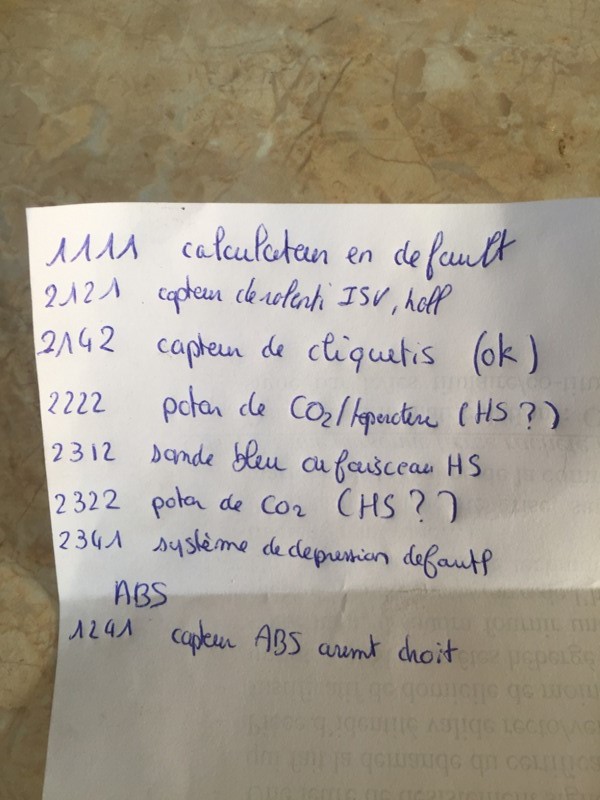 1111 calculateur en default
2121 capteur de ralenti ISV, hall
2142 capteur de cliquetis (ok)
2222 poton de CO2/temperature (HS ?)
2312 sonde bleu ou faisceau HS
2322 poton de CO2 (HS ?)
2341 système de depression default
ABS
1241 capteur ABS avant droit